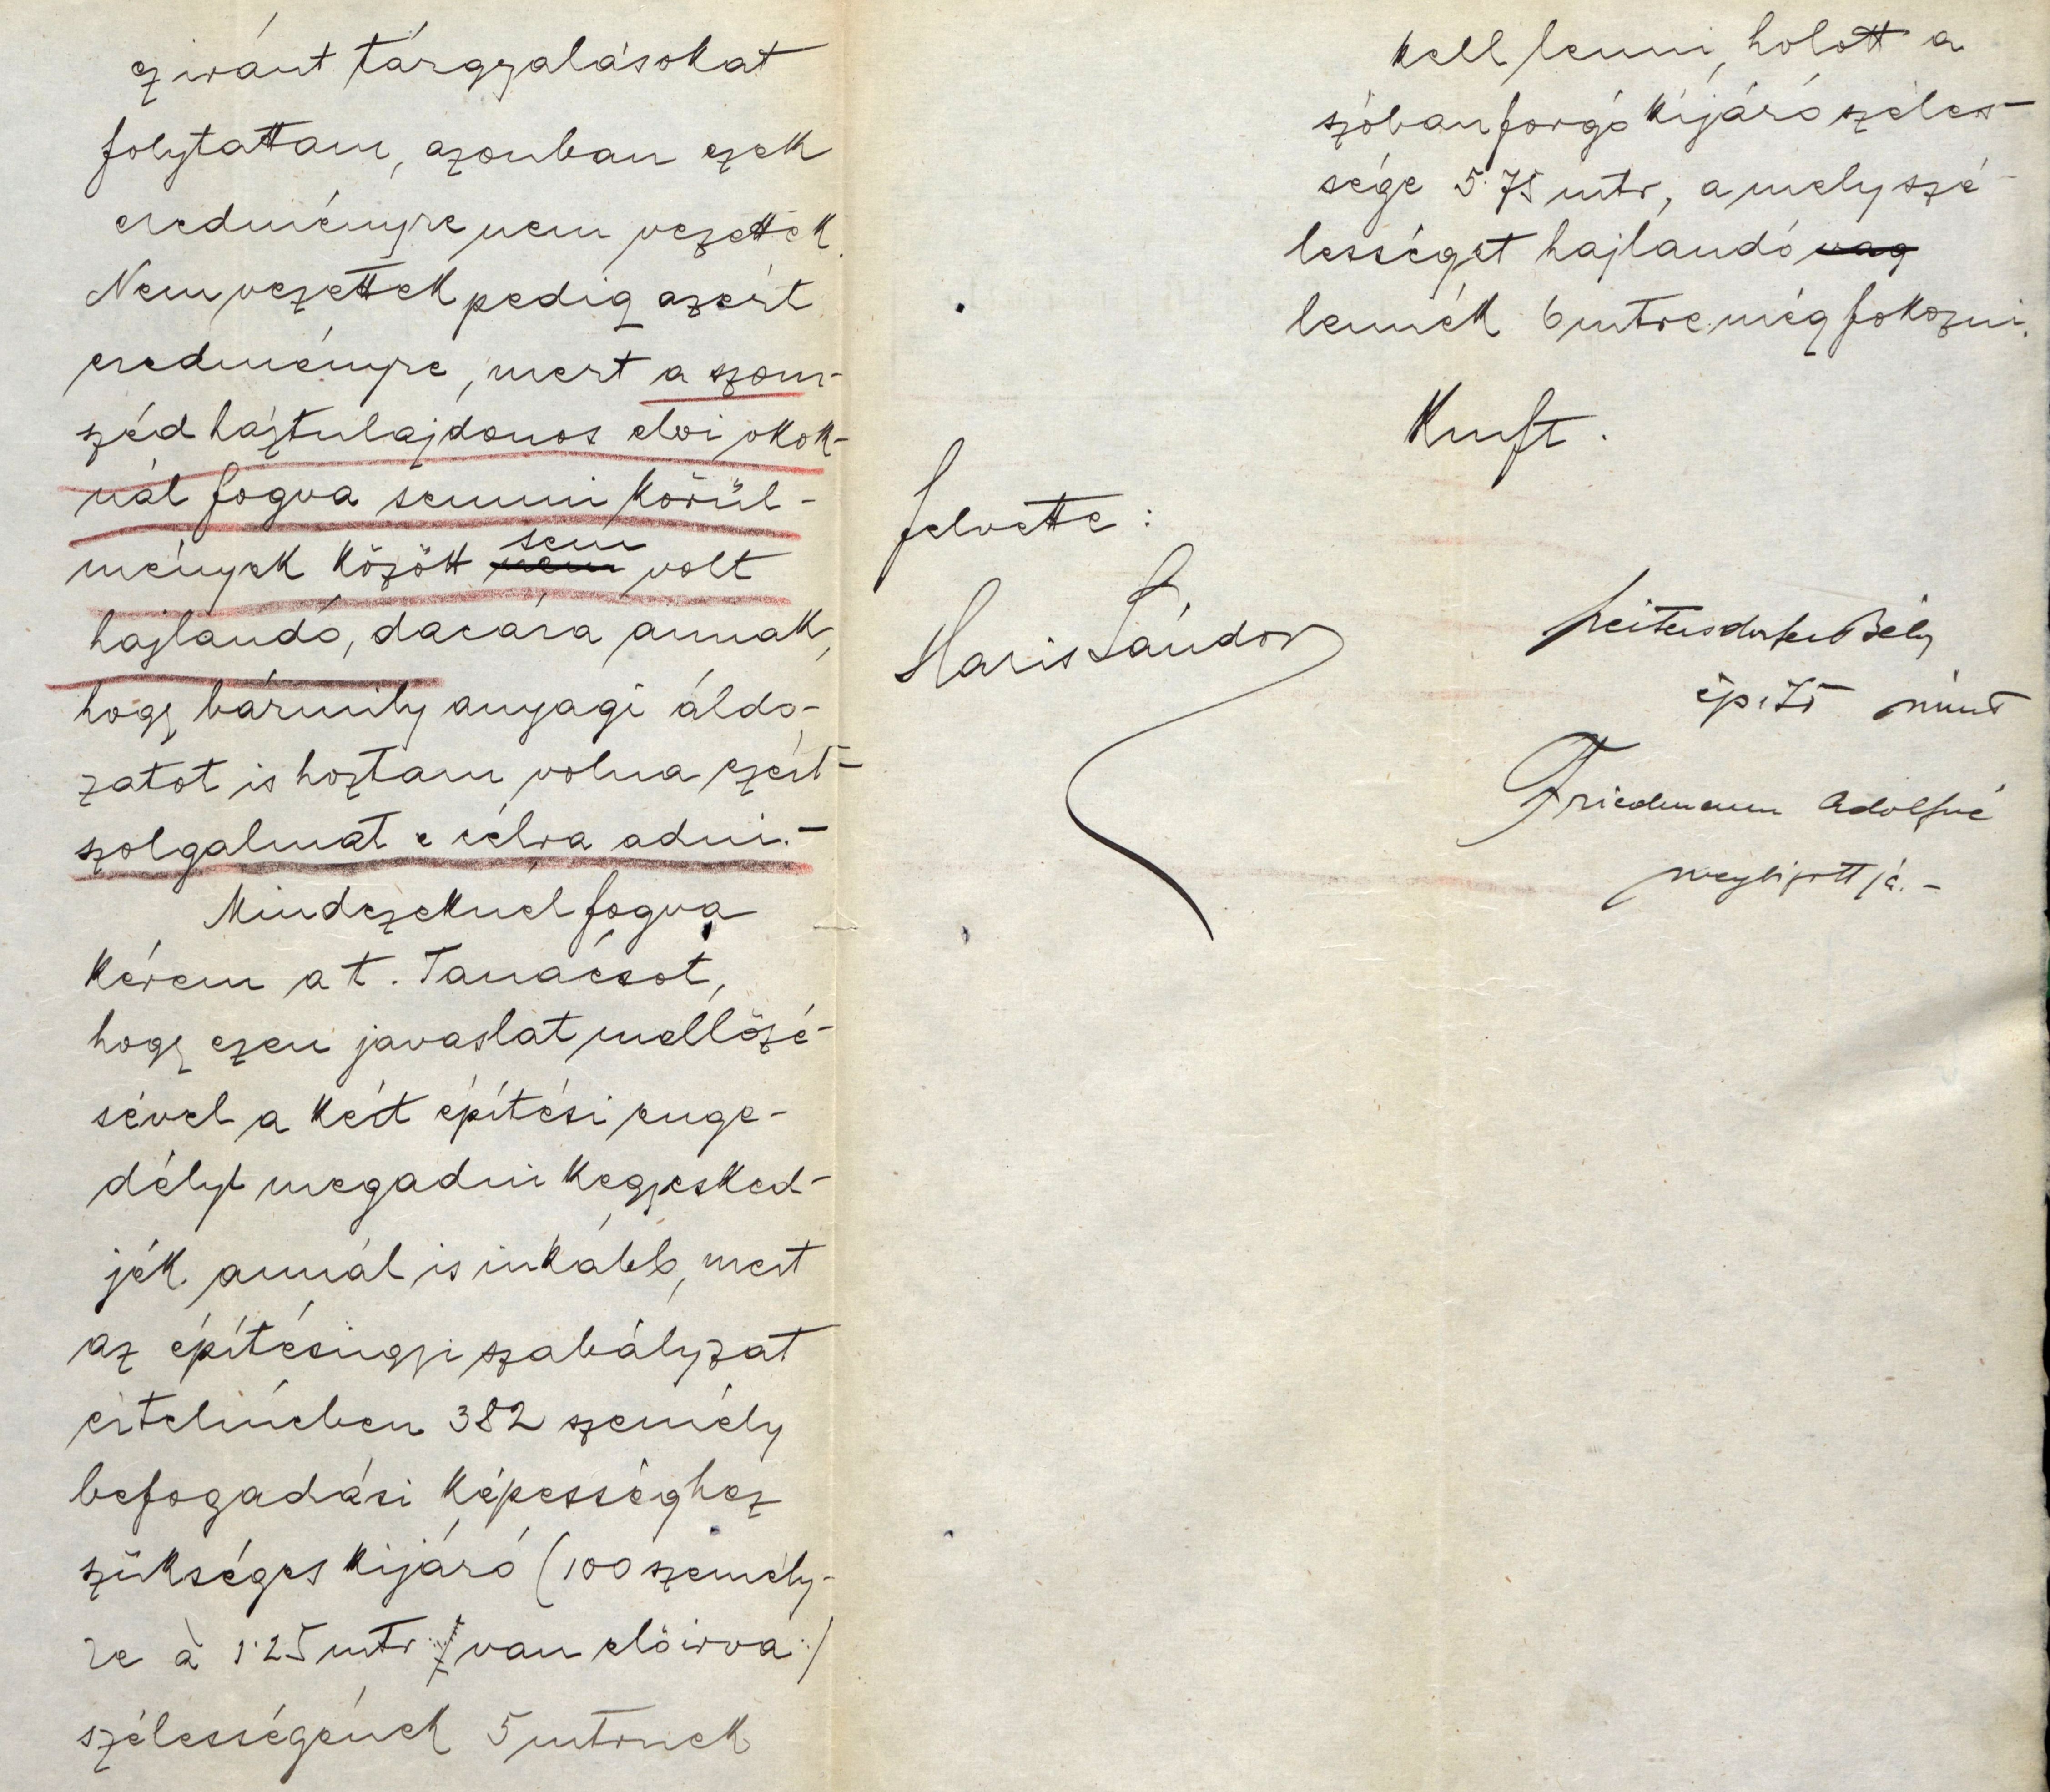 ez iránt tárgyalásokat
folytattam, azonban ezek
eredményre nem vezettek.
Nem vezettek pedig azért
eredményre, mert a szom-
széd háztulajdonos elvi okok-
nál fogva semmi körül-
mények között nem sem volt
hajlandó, dacára annak,
hogy bármily anyagi áldo-
zatot is hoztam volna ezért -
szolgalmat e célra adni. -
Mindezeknél fogva
kérem a t. Tanácsot,
hogy ezen javaslat mellőzé-
sével a kért építési enge-
délyt megadni kegyesked-
jék annál is inkább, mert
az építésügyi szabályzat
értelmében 382 személy
befogadási képességhez
szükséges kijáró (100 személy-
re à 1.25 mtr van előirva :/
szélességének 5 mtrnek
kell lenni, holott a
szóbanforgó kijáró széles-
sége 5.75 mtr, amely szé-
lességet hajlandó vag
lennék 6 mtre még fokozni.
Kmft.
felvette :
Haris Sándor
Béla
építő mint
Friedmann Adolfné
megbizottja. -